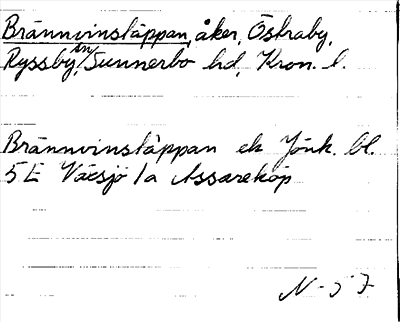 Brännvinstäppan, åker, Östraby,
Ryssby sn, Sunnerbo hd, Kron. l.
Brännvinstäppan ek Jönk. bl.
5E Växsjö 1a Assareköp
N-57